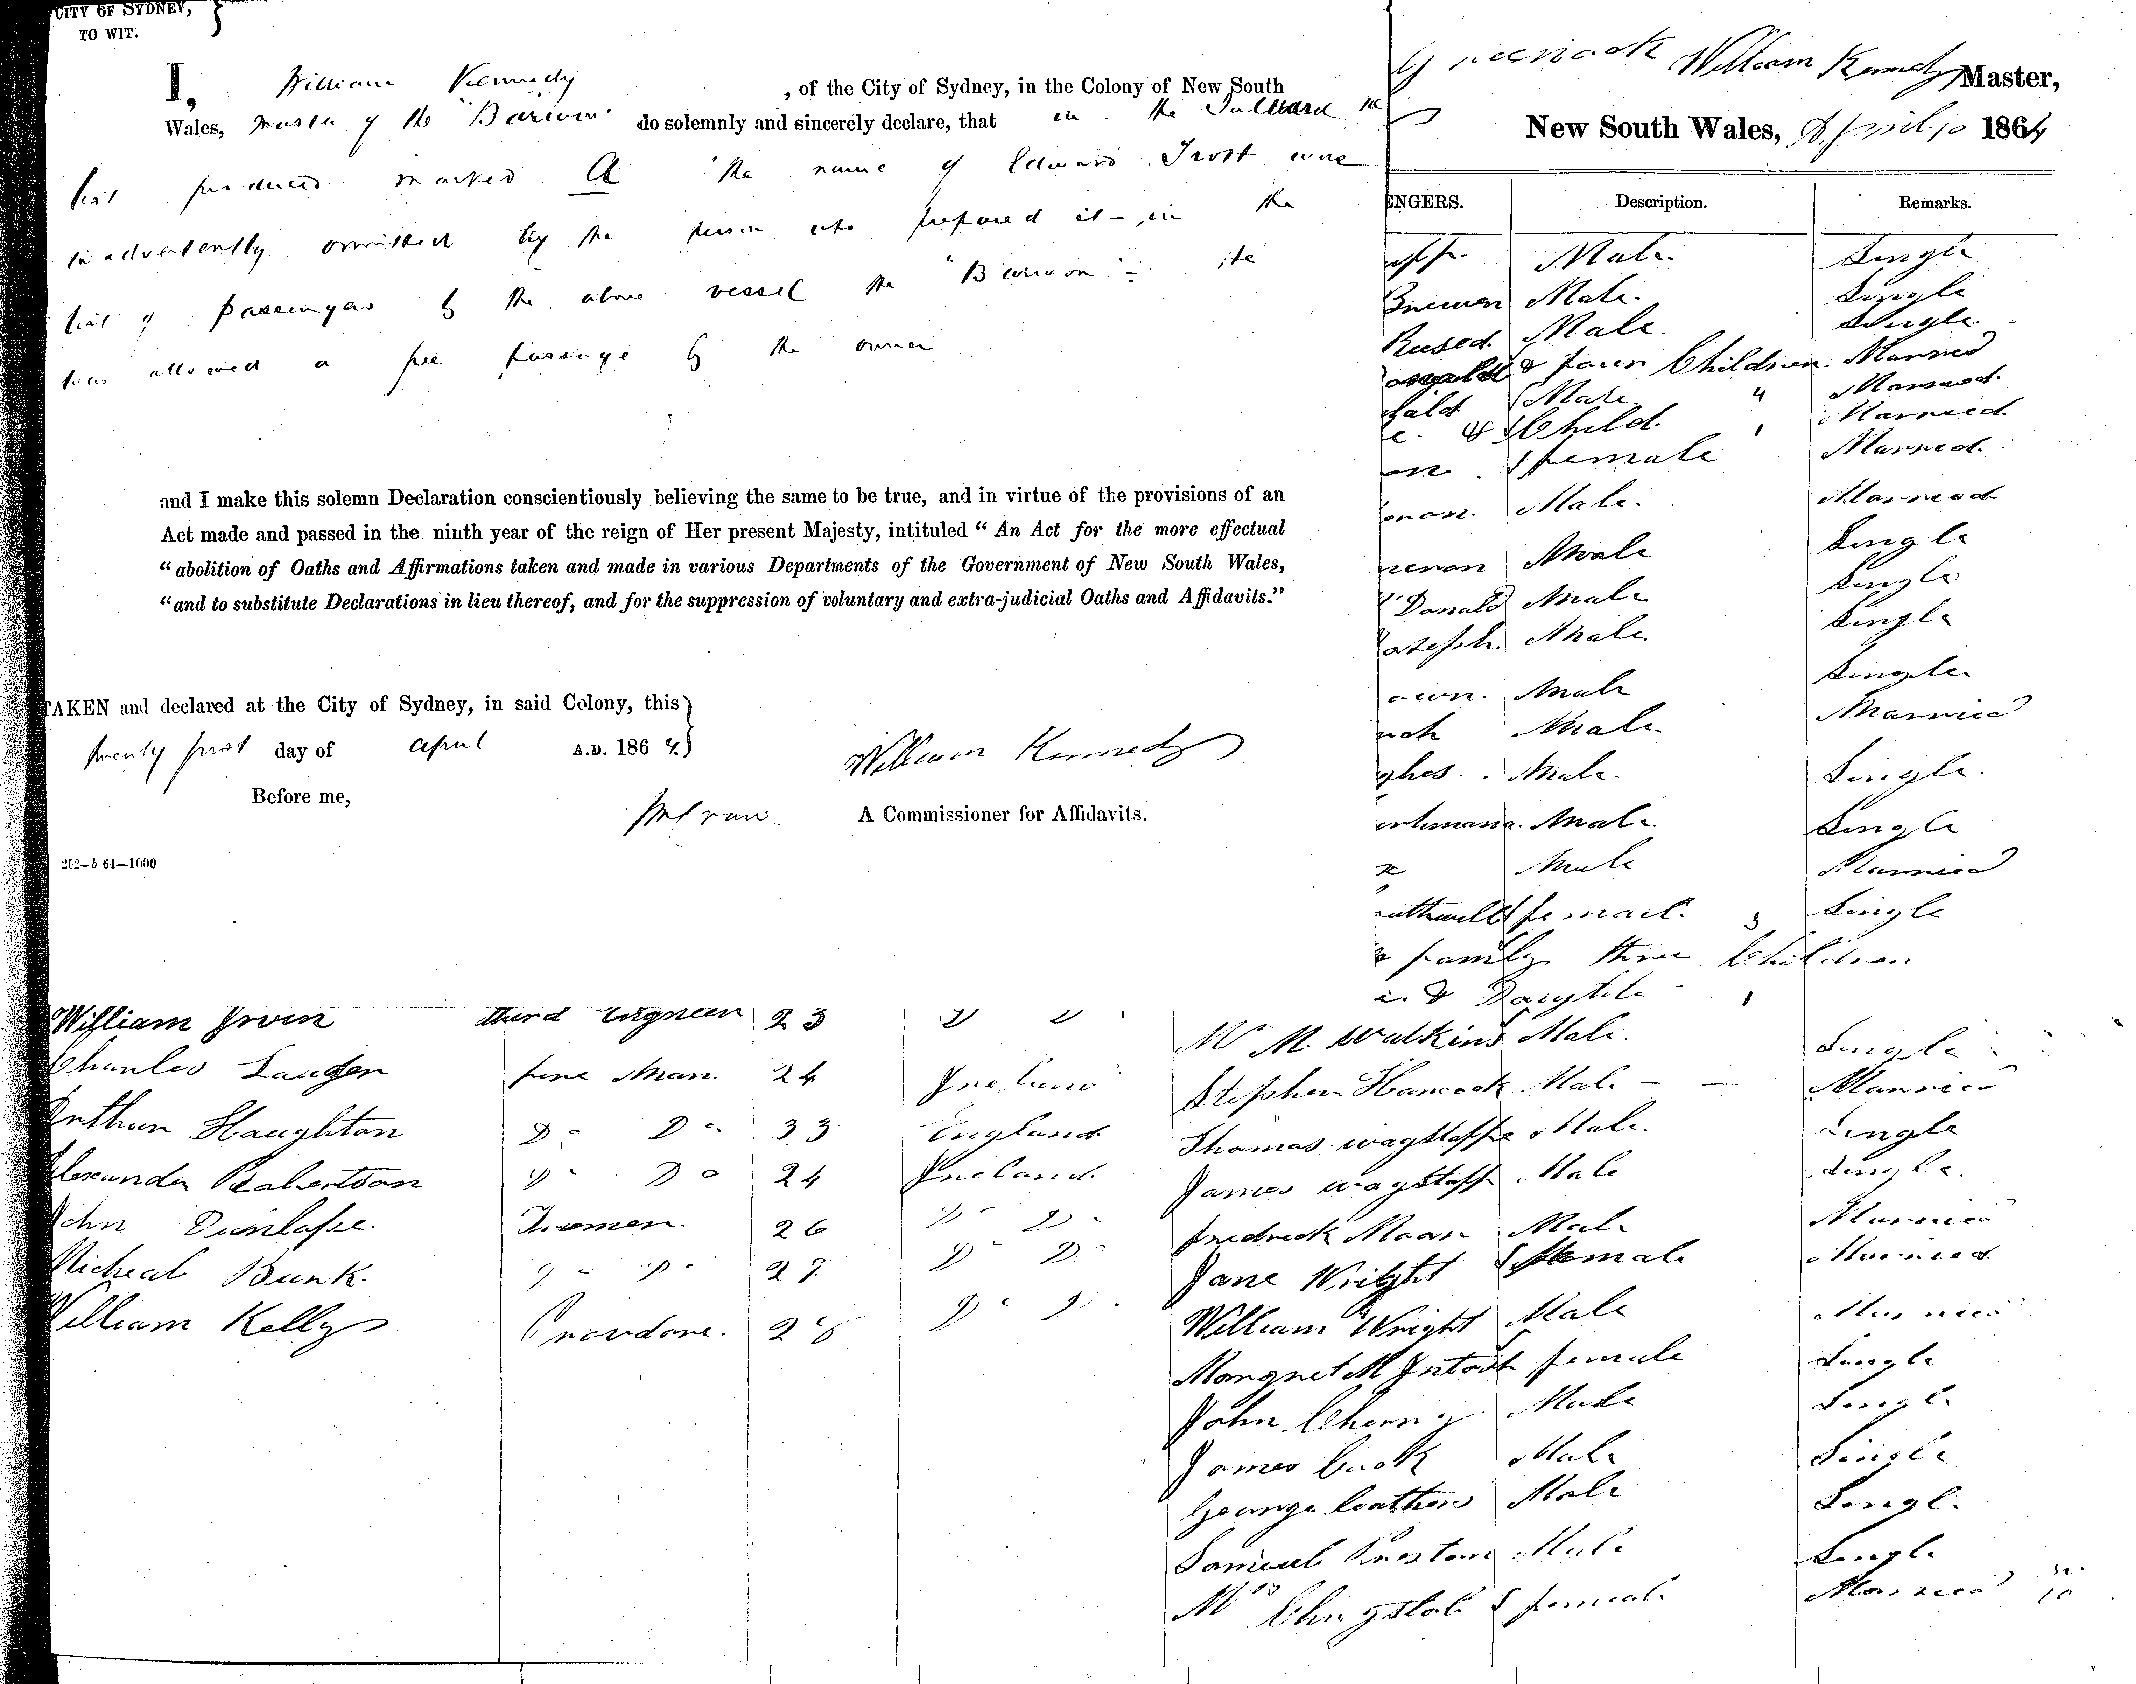 CITY OF SYDNEY,
TO WIT.
I, William Kennedy, of the City of Sydney, in the Colony of New South
Wales, master of the "Barwon" do solemnly and sincerely declare, that in the
list produced marked A the name of Edward Trost was
inadvertently omitted by the person who prepared it in the
list of passengers by the above vessel the "Barwon" - He
was allowed a free passage by the owner
and I make this solemn Declaration conscientiously believing the same to be true, and in virtue of the provisions of an
Act made and passed in the ninth year of the reign of Her present Majesty, intituled "An Act for the more effectual
"abolition of Oaths and Affirmations taken and made in various Departments of the Government of New South Wales,
"and to substitute Declarations in lieu thereof, and for the suppression of voluntary and extra-judicial Oaths and Affidavits."
TAKEN and declared at the City of Sydney, in said Colony, this
twenty first day of April A.D. 1864
Before me,
William Kennedy
A Commissioner for Affidavits.
262—b 64—1000
William Irvin third Engneer 23 D D
Charles fire Man 24 Ireland
Arthur Haughton D D 33 England
Alexander Robertson D Do 24 Ireland
John Dunlape Tremen 26 D D
Micheal Bunk D D 27 D D
William Kelly Provdore 28 D D
Greenock William Kennedy Master,
New South Wales, April 10 1864
ENGERS. Description. Remarks.
Male Single
Male Single
Male Single
& four Children Married
Male 4 Married
& Child 1 Married
female Married
Male Married
Male Single
Donald Male Single
Male Single
own Male Single
Male Married
ghes Male Single
Male Single
Male Married
female 3 Single
family three Children
& Daughter 1
Mr M. Watkins Male Single
Stephen Hancock Male Married
Thomas wagstaffe Male Single
James wagstaff Male Single
fredrick Moon Male Married
Jane Wright female Married
William Wright Male Married
Margret M Intosh female Single
John Male Single
James Cook Male Single
George Male Single
Samuel Preston Male Single
Mrs female Married